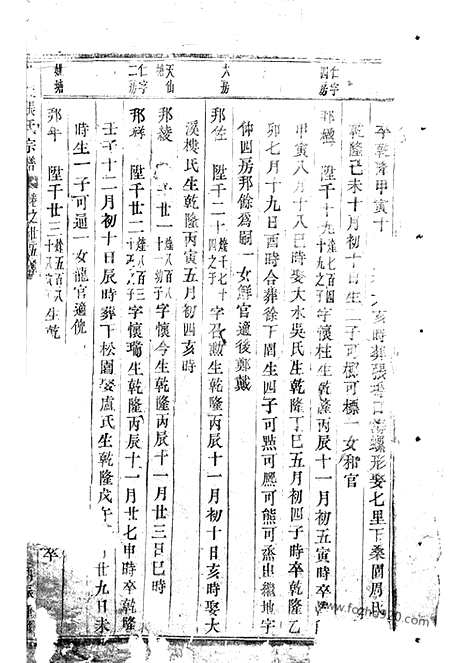 卒乾隆甲寅十
亥時葬張
螺形娶七里下桑園周氏
乾隆己未十月初十日生二子可標一女和官
仁字四房
陞千十九
十九之子
字懷柱生乾隆丙辰十一月初五寅時卒
甲寅八月十八巳時娶大水吳氏生乾隆丁巳五月初四子時卒乾隆乙
卯七月十九日酉時合葬徐下園生四子可點可熊可烝出繼地字
仲四房邦餘為嗣一女鮮官適後鄭戴
大房
邦佐
陞千二十
達千七十四之子
字召勲生乾隆丙辰十一月初十日亥時娶大
溪樓氏生乾隆丙寅五月初四亥時
天仙
邦綾
陞千廿一
字懷今生乾隆丙辰十一月廿三日巳時
仁字二房
邦祥
陞千廿二
字懷瑞生乾隆丙辰十一月廿七申時卒乾隆
壬子十二月初十日辰時葬下松園娶盧氏生乾隆戊午
廿九日未
時生一子可通一女龍官適
邦年
陞千廿三
達五百八
十八
生乾
張氏宗譜
卷之廿五
卒